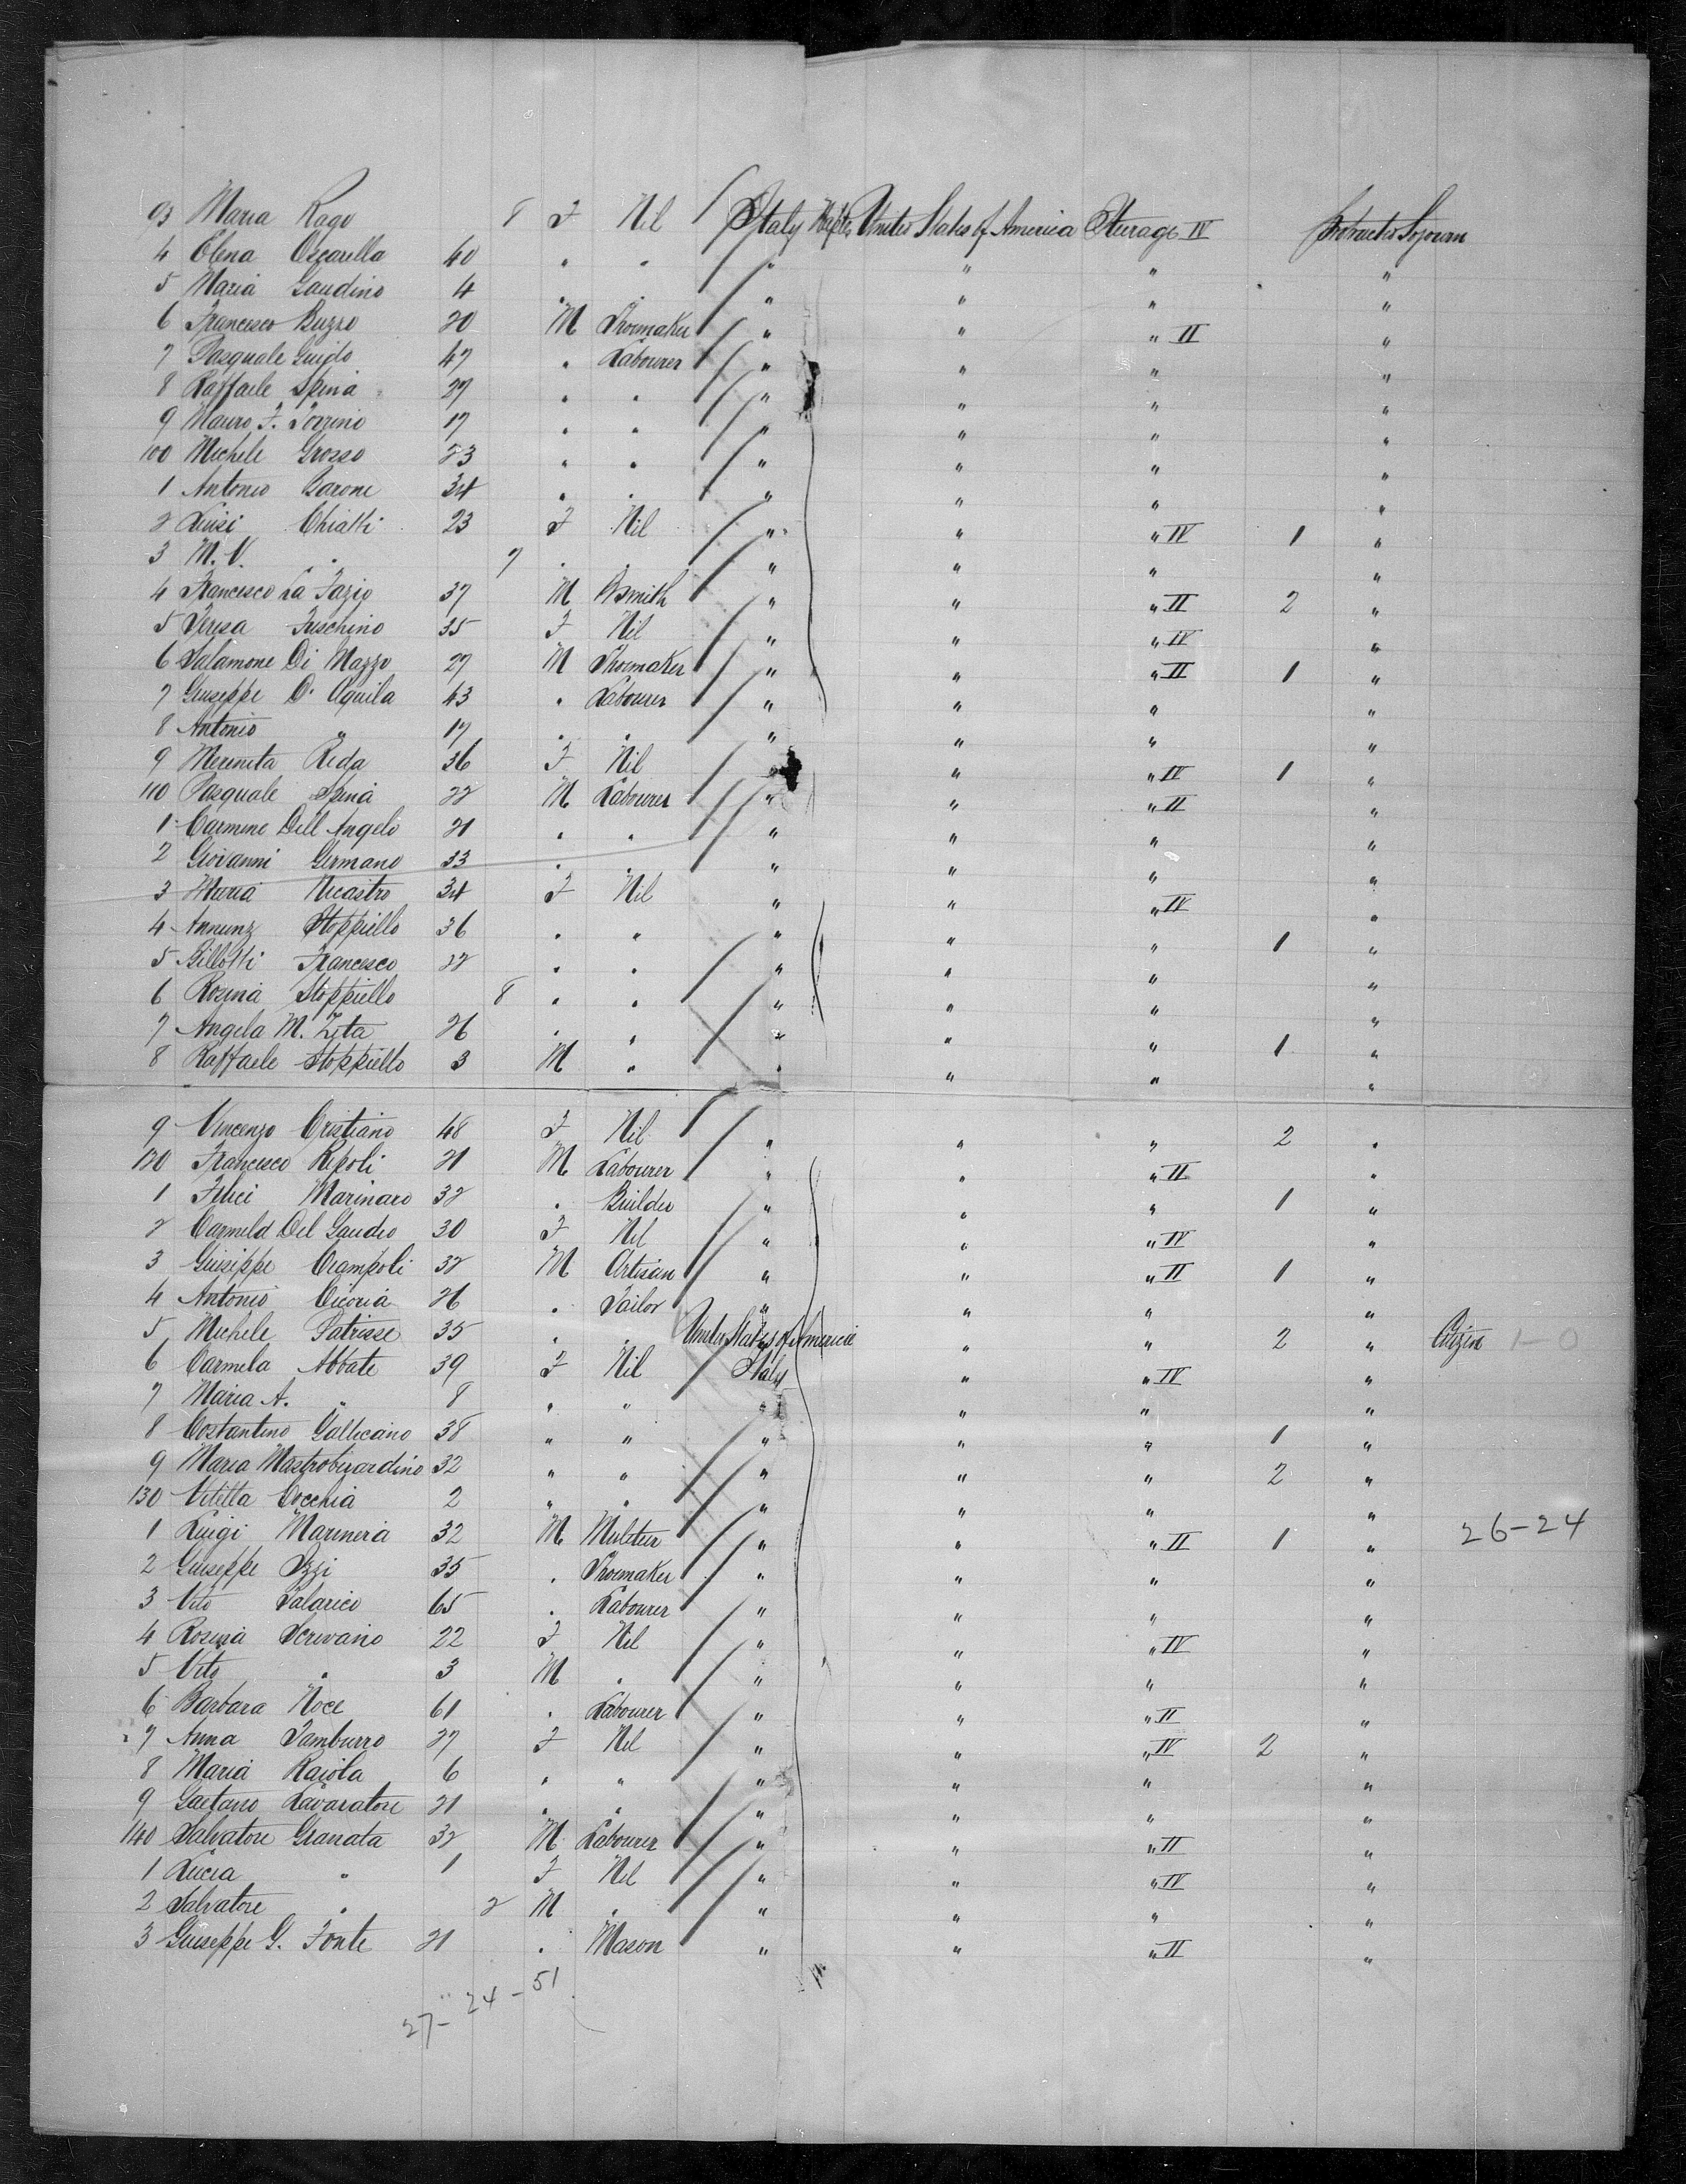 93 Maria Rago 8 F Nil Italy Naples United States of America Sturage IV Protracted Sojourn
4 Elena Oscarella 40 " " " " " "
5 Maria Gaudino 4 " " " " " "
6 Francesco Buzzo 20 M Shoemaker " " " II "
7 Pasquale Guido 47 " Labourer " " " "
8 Raffaele Spina 27 " " " " " "
9 Mauro F. 17 " " " " " "
100 Michele Grosso 23 " " " " " "
1 Antonio Barone 34 " " " " " "
2 Luisi Chiatti 23 F Nil " " " IV 1 "
3 M. V. " 7 " " " " " "
4 Francesco La Fazio 37 M Bsmith " " " II 2 "
5 Teresa Fuschino 35 F Nil " " " IV "
6 Salamone Di Mazzo 27 M Shoemaker " " " II 1 "
7 Giuseppe D'Aquila 43 " Labourer " " " "
8 Antonio " 17 " " " " " "
9 Merenita Reda 36 F Nil " " " IV 1 "
110 Pasquale Spina 22 M Labourer " " " II "
1 Carmine Dell Angelo 21 " " " " " "
2 Giovanni Germano 33 " " " " " "
3 Maria Nicastro 34 F Nil " " " IV "
4 Annunz Stoppiello 36 " " " " " 1 "
5 Billotti Francesco 22 " " " " " "
6 Rosina Stoppiello 8 " " " " " "
7 Angela M. Zita 26 " " " " " 1 "
8 Raffaele Stoppiello 3 M " " " " "
9 Vincenzo Cristiano 48 F Nil " " " 2 "
120 Francesco Ripoli 21 M Labourer " " " II "
1 Felici Marinaro 32 " Builder " " " 1 "
2 Carmela Del Gaudio 30 F Nil " " " IV "
3 Giuseppe Crampoli 32 M Artisan " " " II 1 "
4 Antonio Cicoria 26 " Tailor " " " "
5 Michele Patrisse 35 " " United States of America " " 2 " Citizen 1-0
6 Carmela Abbate 39 F Nil Italy " " IV "
7 Maria A. " 8 " " " " " "
8 Costantino Gallicano 38 " " " " " 1 "
9 Maria Mastroberardino 32 " " " " " 2 "
130 Vitetta Cocchia 2 " " " " " "
1 Luigi Marinera 32 M Muleteer " " " II 1 " 26-24
2 Giuseppe Izzi 35 " Shoemaker " " " "
3 Vito Salarico 65 " Labourer " " " "
4 Rosina Scrivano 22 F Nil " " " IV "
5 Vito " 3 M " " " " "
6 Barbara Noce 61 " Labourer " " " II "
7 Anna Tamburro 27 F Nil " " " IV 2 "
8 Maria Raiola 6 " " " " " "
9 Gaetano Lavaratore 21 " " " " " "
140 Salvatore Granata 32 M Labourer " " " II "
1 Lucia " 1 F Nil " " " IV "
2 Salvatore " 2 M " " " " "
3 Giuseppe G. Fonte 21 " Mason " " " II "
27-24-51